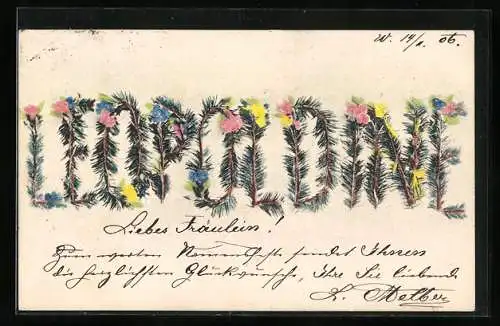 W. 14/11. 06.
LEOPOLDINE
Liebes Fräulein!
Zum werten Namensfeste sendet Ihnen
die herzlichsten Glückwünsche, Ihre Sie liebende
L. Melber